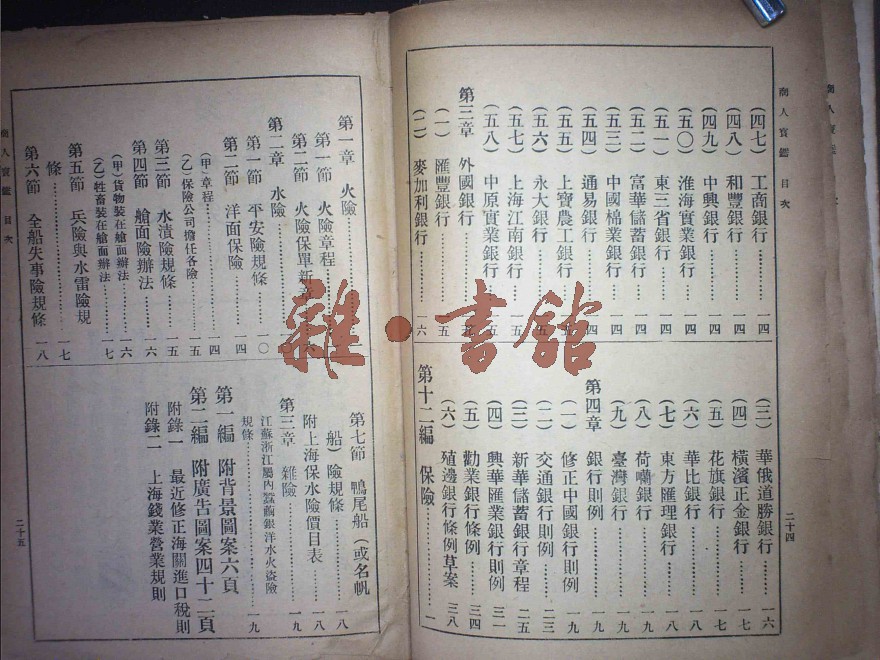 商人寶鑑 目次
(四七) 工商銀行 一四
(四八) 和豐銀行 一四
(四九) 中興銀行 一四
(五〇) 淮海實業銀行 一四
(五一) 東三省銀行 一四
(五二) 富華儲蓄銀行 一四
(五三) 中國棉業銀行 一四
(五四) 通易銀行 一四
(五五) 上寶農工銀行 五
(五六) 永大銀行 五
(五七) 上海江南銀行 一五
(五八) 中原實業銀行 一五
第三章 外國銀行 五
(一) 匯豐銀行 五
(二) 麥加利銀行 一六
(三) 華俄道勝銀行 一六
(四) 橫濱正金銀行 一七
(五) 花旗銀行 一七
(六) 華比銀行 一八
(七) 東方匯理銀行 一八
(八) 荷囒銀行 一八
(九) 臺灣銀行 一九
第四章 銀行則例 一九
(一) 修正中國銀行則例 一九
(二) 交通銀行則例 二三
(三) 新華儲蓄銀行章程 二五
(四) 興華匯業銀行則例 三一
(五) 勸業銀行條例 三四
(六) 殖邊銀行條例草案 三八
第十二編 保險 一
二十四
商人寶鑑 目次
第一章 火險
第一節 火險章程
第二節 火險保單新章
第二章 水險
第一節 平安險規條 一〇
第二節 洋面保險 一四
(甲)章程 四
(乙)保險公司擔任各險 五
第三節 水漬險規條 一五
第四節 艙面險辦法 一六
(甲)貨物裝在艙面辦法 一六
(乙)牲畜裝在艙面辦法 一七
第五節 兵險與水雷險規
條 一七
第六節 全船失事險規條 一八
第七節 鴨尾船(或名帆
船)險規條 一八
附上海保水險價目表 一八
第三章 雜險 一九
江蘇浙江屬內蠶繭銀洋水火盜險
規條 一九
第一編 附背景圖案六頁
第二編 附廣告圖案四十二頁
附錄一 最近修正海關進口稅則
附錄二 上海錢業營業規則
二十五
雜·書館